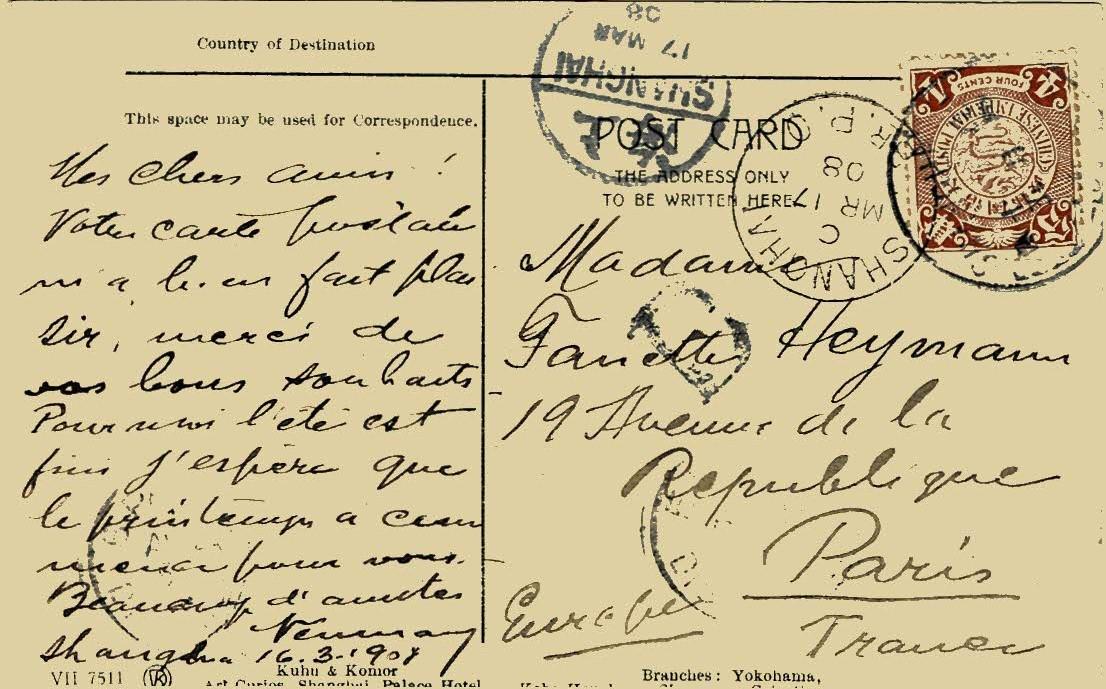 Country of Destination
This space may be used for Correspondence.
POST CARD
THE ADDRESS ONLY
TO BE WRITTEN HERE
17 MAR
08
SHANGHAI
SHANGHAI
C
MR 17
08
FOUR CENTS
CHINESE IMPERIAL POST
Mes chers amis!
Votre carte postale
m'a bien fait plai
sir, merci de
vos bons souhaits
Pour moi l'été est
fini j'espère que
le printemps a com
mencé pour vous.
Beaucoup d'amitiés
Shanghai 16.3.1908
Madame
Fanette Heymann
19 Avenue de la
Republique
Paris
Europe
France
VII 7511
Kuhn & Komor
Art Curios, Shanghai, Palace Hotel
Branches: Yokohama,